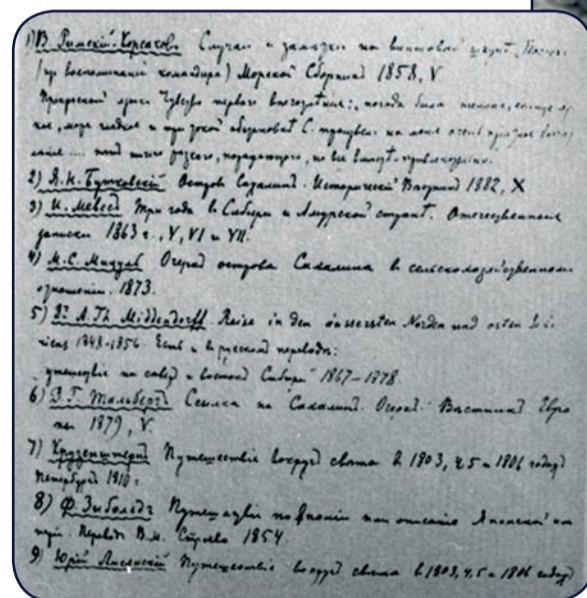 1) В. Римскій-Корсаковъ Случаи и замѣтки на винтовой шкунѣ „Востокъ
/ воспоминаній командира) Морской Сборникъ 1858, V
первого впечатлѣнія: погода была
море гладкое и при С. на меня очень
ничего рѣзкаго, но все
2) Я. Н. Бутковскій Островъ Сахалинъ. Историческій Вѣстникъ 1882, X
3) И. Мевесъ Три года в Сибири и Амурской странѣ. Отечественныя
записки 1863 г., V, VI и VII.
4) М. С. Мицуль Очеркъ острова Сахалина в сельскохозяйственномъ
отношеніи. 1873.
5) Dr A. Th. Middendorff Reise in den äussersten Norden und osten Sibi
riens 1843-1856. Есть и в русскомъ переводѣ:
утешествіе на сѣверъ и востокъ Сибири 1867-1878
6) Д. Г. Тальбергъ Ссылка на Сахалинъ. Очеркъ. Вѣстникъ Евро
пы 1879, V.
7) Крузенштернъ Путешествіе вокругъ свѣта в 1803, 4, 5 и 1806 годахъ
Петербургъ 1810 г.
8) Ф. Зибольдъ Путешествіе по Японіи или описаніе Японской им
періи. Переводъ В. М. Строева 1854.
9) Юрій Лисянскій Путешествіе вокругъ свѣта в 1803, 4, 5 и 1806 годахъ